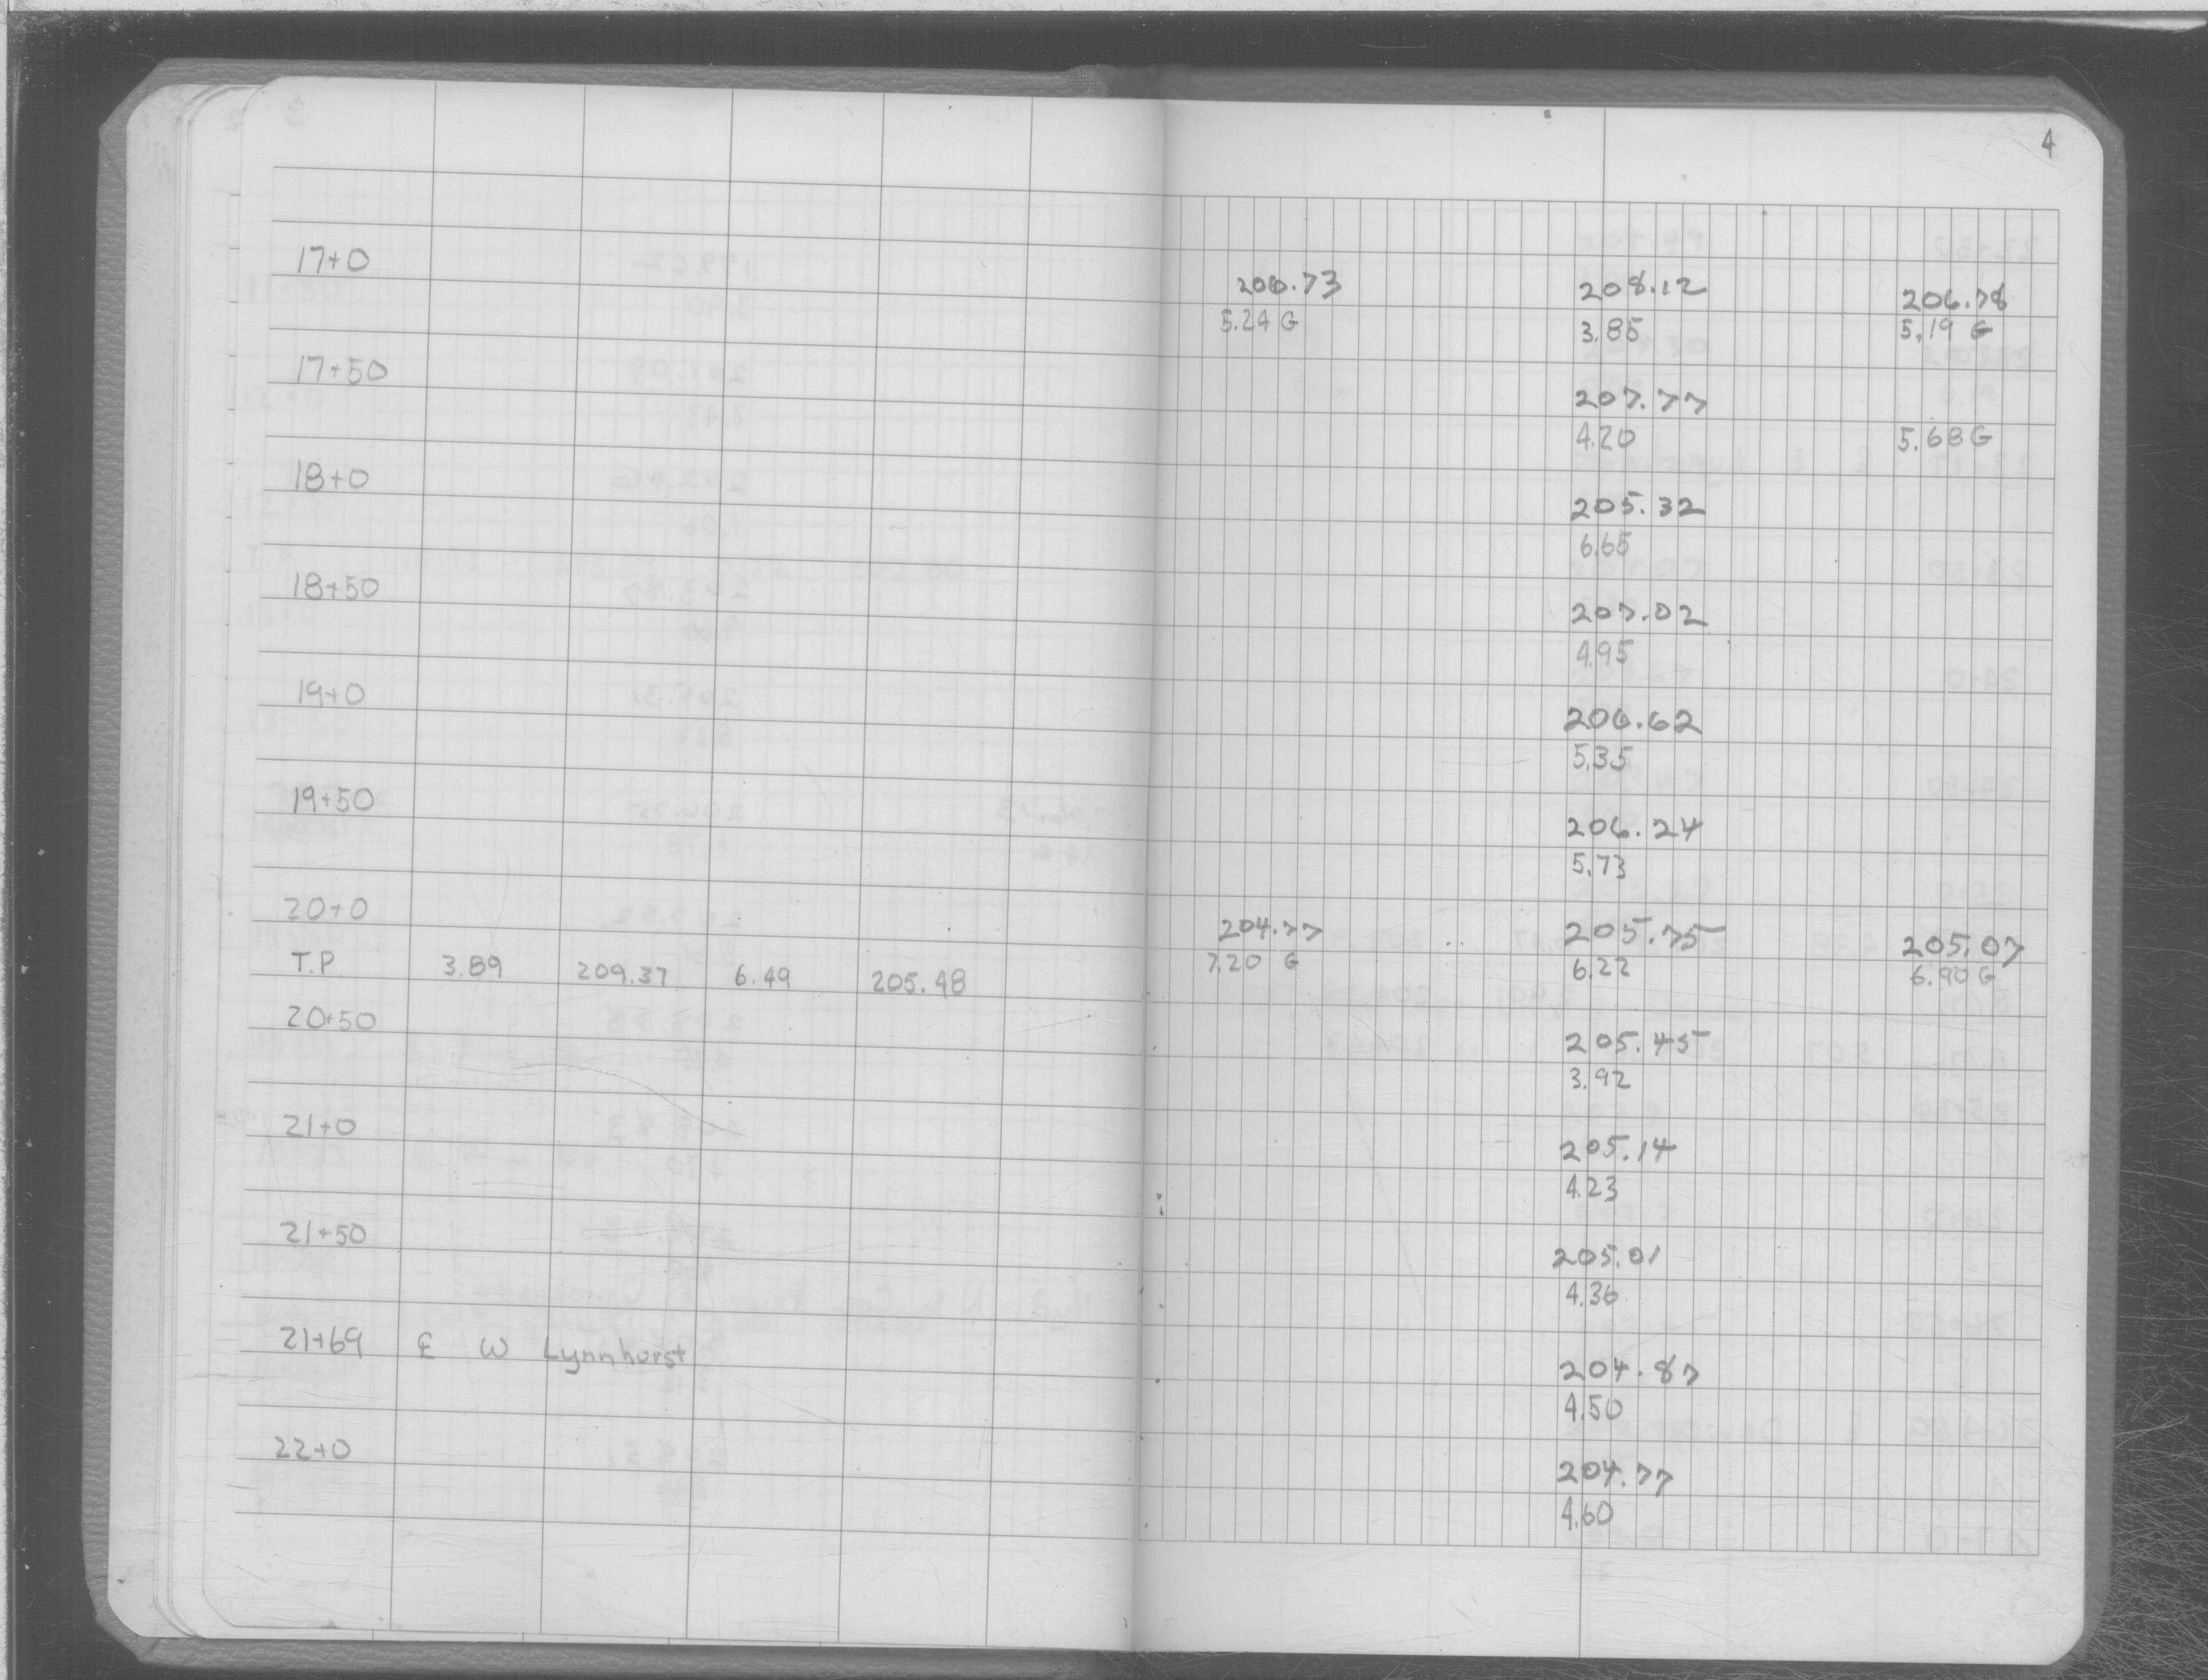 4
17+0
206.73 208.12 206.78
5.24 G 3.85 5.19 G
17+50
207.77
4.20 5.68 G
18+0
205.32
6.65
18+50
207.02
4.95
19+0
206.62
5.35
19+50
206.24
5.73
20+0
204.77 205.75 205.07
T.P. 3.89 209.37 6.49 205.48 7.20 G 6.22 6.90 G
20+50
205.45
3.92
21+0
205.14
4.23
21+50
205.01
4.36
21+69 £ W Lynnhurst
204.87
4.50
22+0
204.77
4.60